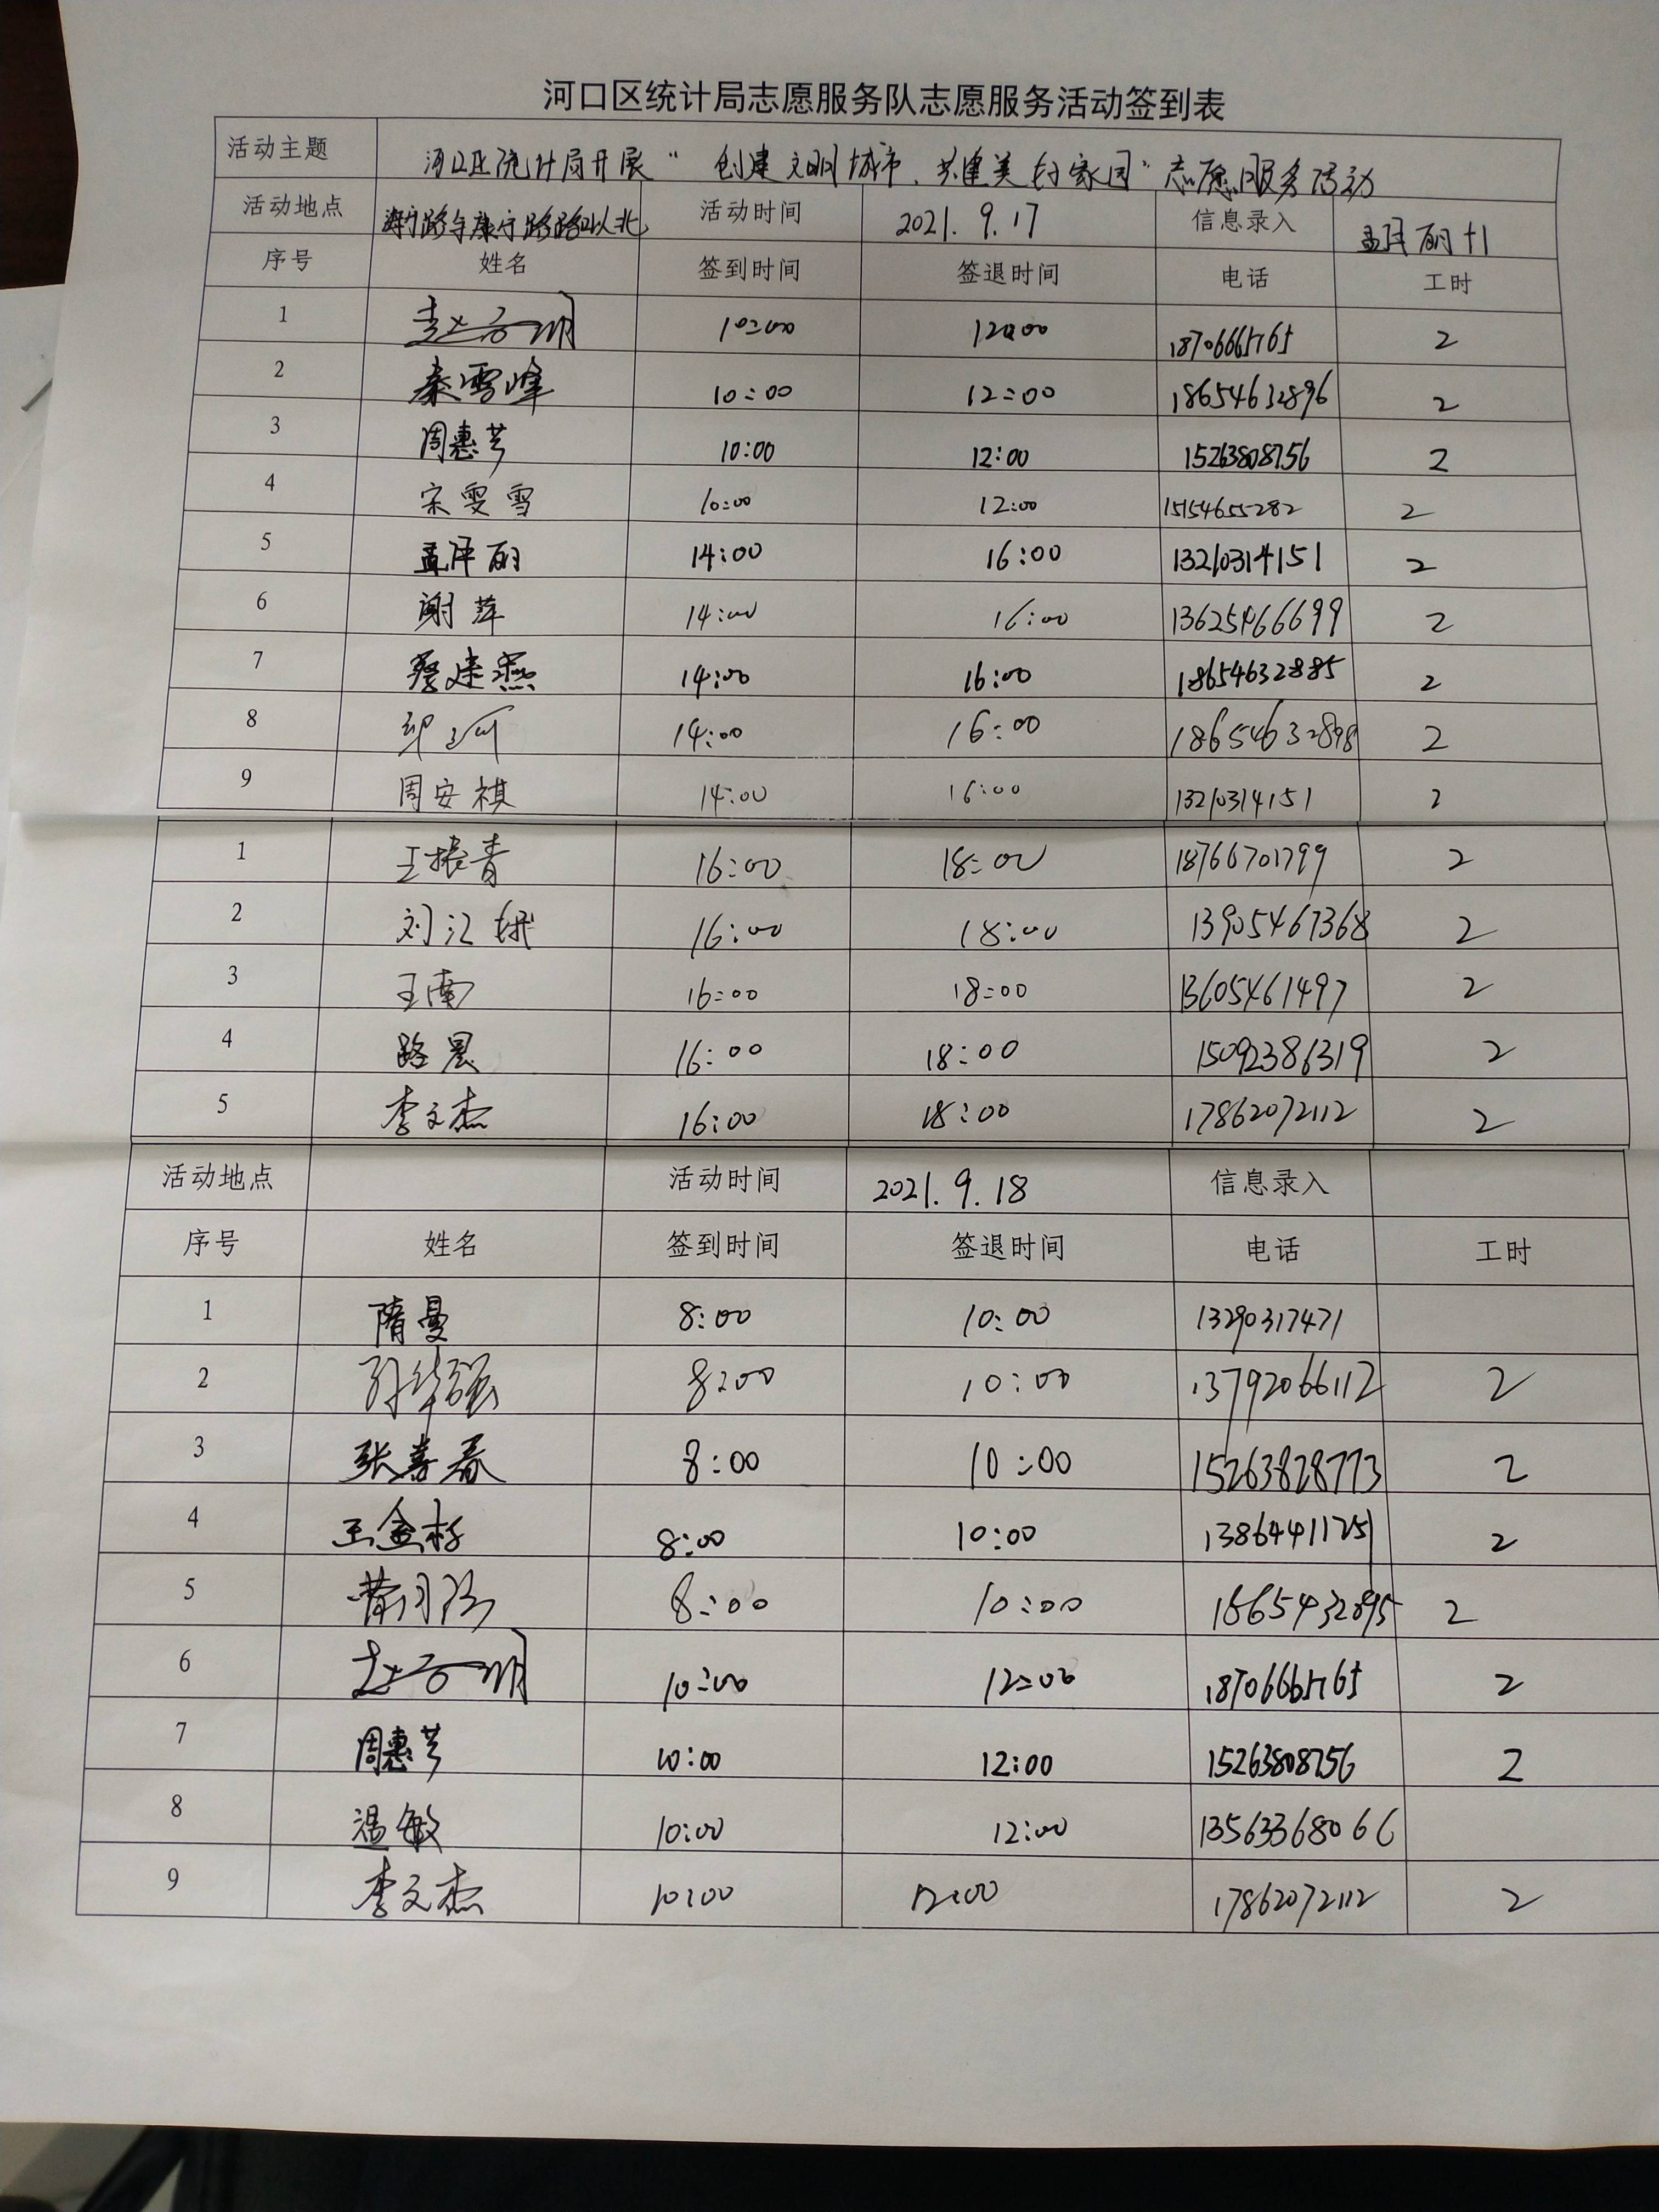 河口区统计局志愿服务队志愿服务活动签到表
活动主题 河口区统计局开展“创建文明城市、共建美好家园”志愿服务活动
活动地点 海宁路与康宁路路口以北 活动时间 2021.9.17 信息录入 孟泽丽+1
序号 姓名 签到时间 签退时间 电话 工时
1 赵子明 10:00 12:00 18706665765 2
2 秦雪峰 10:00 12:00 18654632896 2
3 周惠芳 10:00 12:00 15263808756 2
4 宋雯雪 10:00 12:00 15154655282 2
5 孟泽丽 14:00 16:00 13210314151 2
6 谢萍 14:00 16:00 13625466699 2
7 蔡建燕 14:00 16:00 18654632885 2
8 14:00 16:00 18654632898 2
9 周安祺 14:00 16:00 13210314151 2
1 王振青 16:00 18:00 18766701799 2
2 刘江娥 16:00 18:00 13905467368 2
3 王南 16:00 18:00 13605461497 2
4 路晨 16:00 18:00 15092386319 2
5 李文杰 16:00 18:00 17862072112 2
活动地点 活动时间 2021.9.18 信息录入
序号 姓名 签到时间 签退时间 电话 工时
1 隋曼 8:00 10:00 13290317471
2 孙华强 8:00 10:00 13792066112 2
3 张善春 8:00 10:00 15263828773 2
4 王金杉 8:00 10:00 13864411251 2
5 8:00 10:00 1865432895 2
6 赵子明 10:00 12:00 18706665765 2
7 周惠芳 10:00 12:00 15263808756 2
8 温敏 10:00 12:00 13563368066
9 李文杰 10:00 12:00 17862072112 2